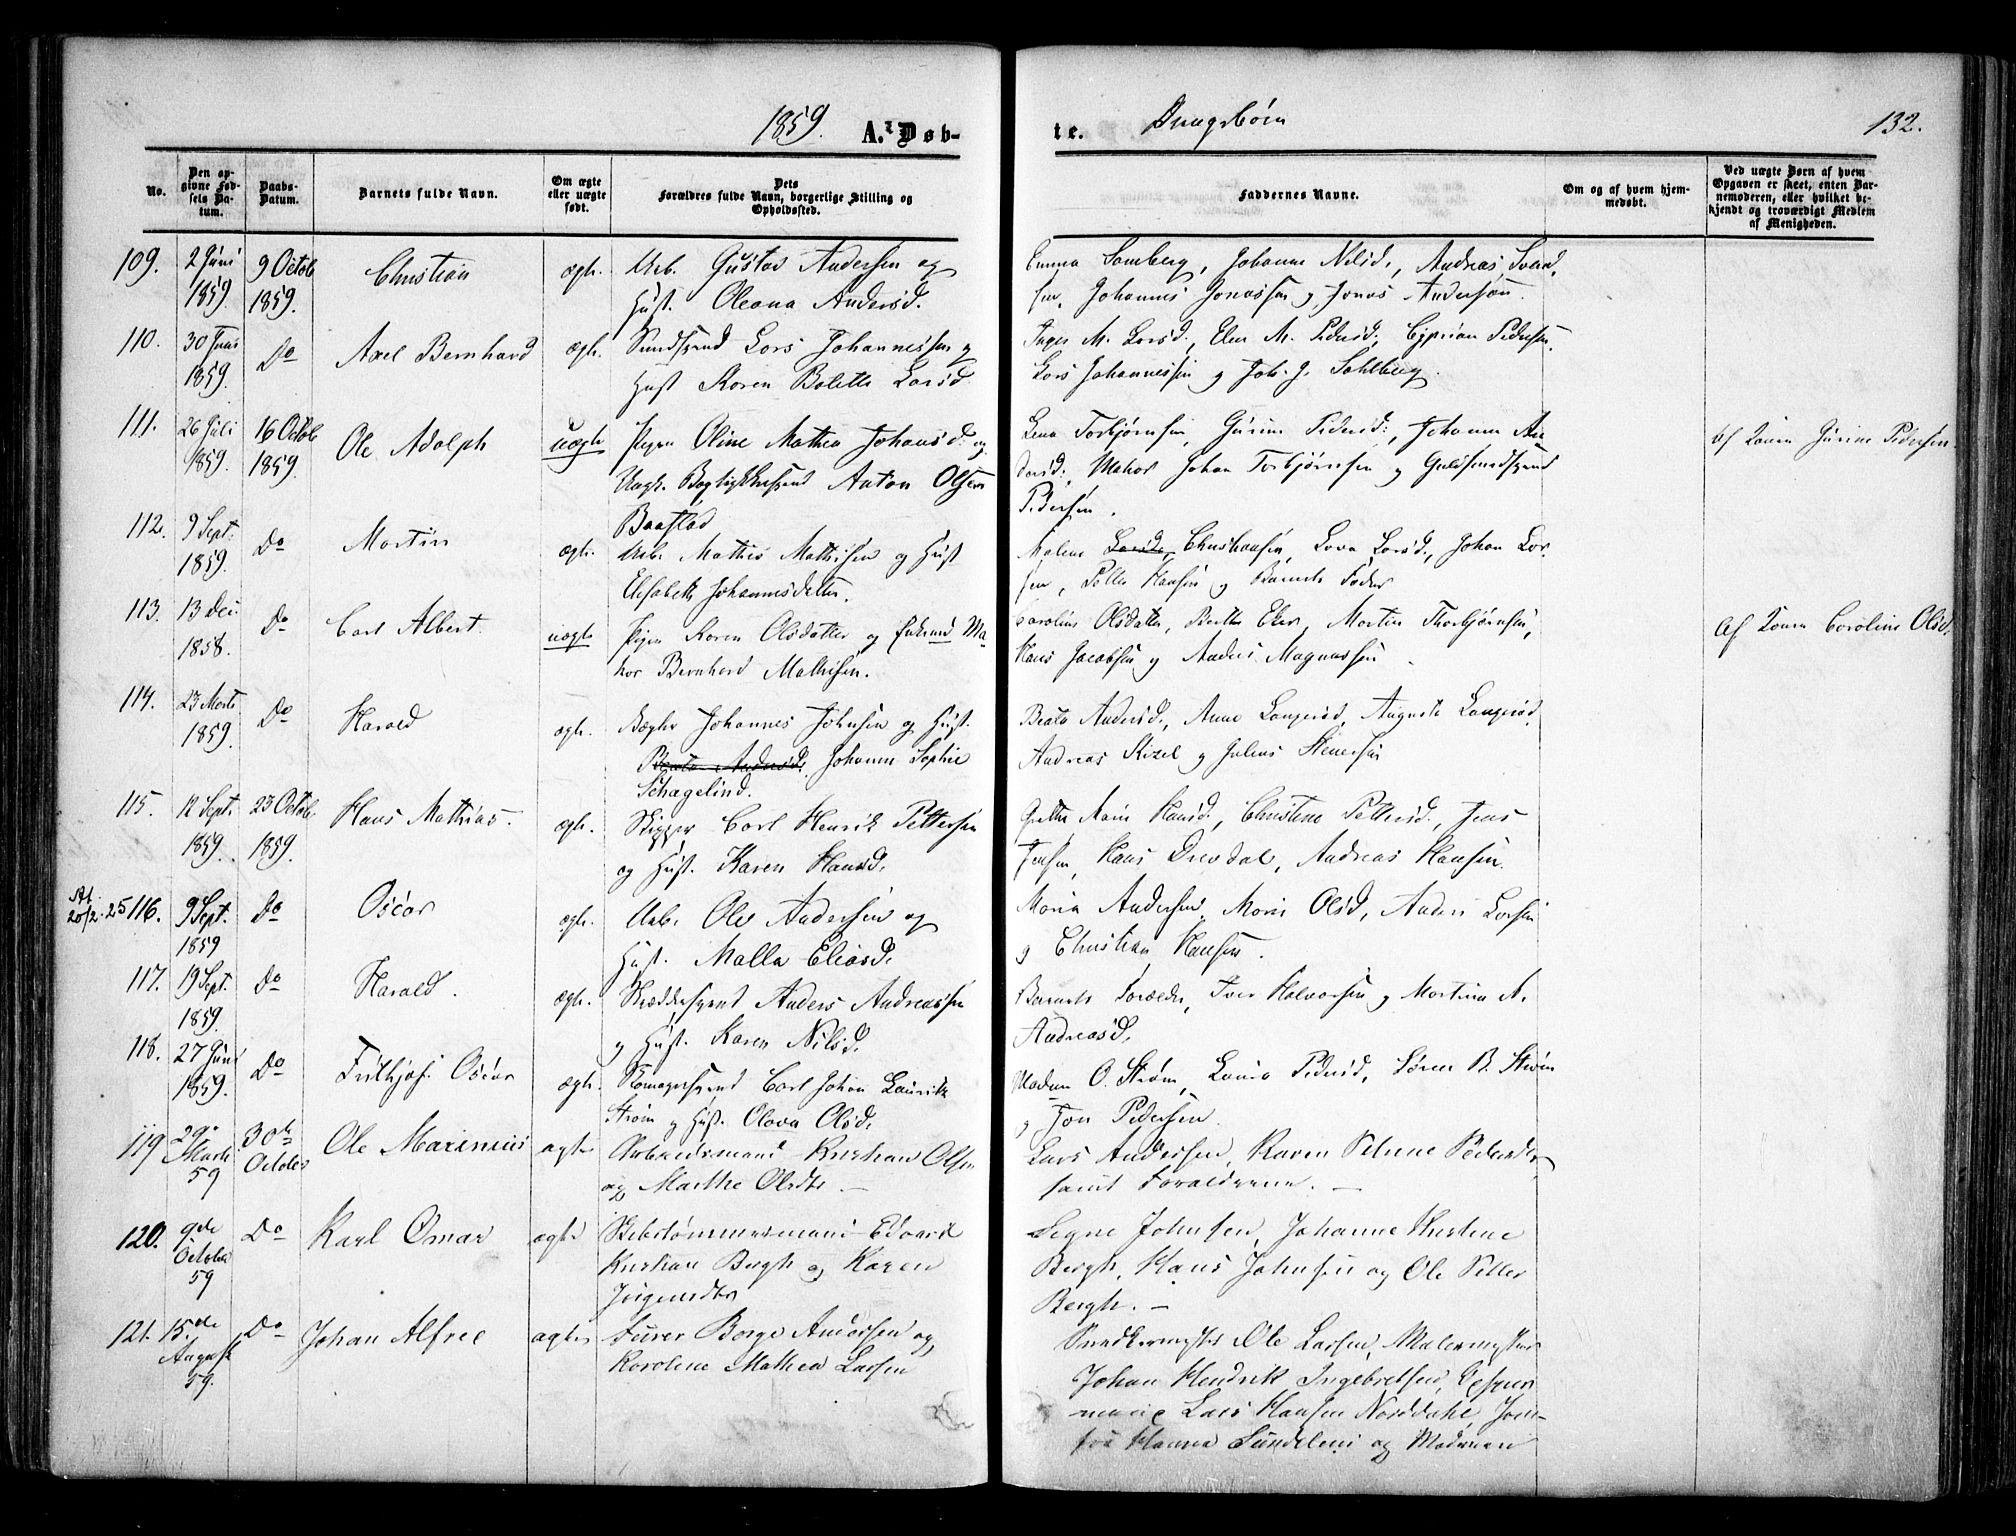 1859. A. Døb-
te. Drengebørn 132.
No.
Den op-
givne Fød-
sels Da-
tum.
Daabs-
Datum.
Barnets fulde Navn.
Om ægte
eller uægte
født.
Dets
Forældres fulde Navn, borgerlige Stilling og
Opholdssted.
Faddernes Navne.
Om og af hvem hjem-
medøbt.
Ved uægte Børn af hvem
Opgaven er skeet, enten Bar-
nemoderen, eller hvilket be-
kjendt og troværdigt Medlem
af Menigheden.
109. 2 Juni 9 Octob Christian ægte. Arb. Gustav Andersen og
1859. 1859. Hust. Oleana Andersd.
Emma Lomberg, Johanne Nilsd., Andreas Svend-
sen, Johannes Jonassen og Jonas Andersen.
110. 30 Juni Do Axel Bernhard ægte. Lars Johannessen og
1859. Hust Karen Bolette Larsd
Inger M. Larsd, Elen M. Pedersd, Cyprian Pedersen,
Lars Johannessen og Joh. J. Sahlberg.
111. 26 Juli 16 Octob Ole Adolph uægte Pigen Oline Mathea Johansd. og
1859. 1859. Ungk. Anton Olsen
Baastad
Lena Torbjørnsen, Gurine Pedersd., Johanne An-
dersd., Johan Torbjørnsen og Guldsmedsvend
Pedersen.
Af Konen Gurine Pedersen
112. 9 Sept. Do Martin ægte. Arb. Mathis Mathisen og Hust
1859. Elisabeth Johannesdatter.
Malene Larsd. Christiansen, Lova Larsd., Johan Lar-
sen, Petter Hansen og Barnets Fader
113. 13 Dec. Do Carl Albert uægte Pigen Karen Olsdatter og Enkemd Ma-
1858. Bernhard Mathisen.
Caroline Olsdatter, Berthe Eker, Martin Thorbjørnsen,
Hans Jacobsen og Anders Magnussen
Af Konen Caroline Olsd.
114. 23 Marts Do Harald ægte. Bøgter Johannes Johnsen og Hust.
1859. Beate Andersd. Johanne Sophie
Schagelind.
Beate Andersd., Anne Langerød, Auguste Langerød,
Andreas Kizel og Julius Stenersen
115. 12 Sept. 23 Octob. Hans Mathias. ægte. Skipper Carl Henrik Pettersen
1859. 1859. og Hust. Karen Hansd.
Grethe Marie Hansd., Christine Pettersd., Jens
Jensen, Hans Drevdal, Andreas Hansen.
Att.
20/2.25 116. 9 Sept. Do Oscar ægte. Arb. Ole Andersen og
1859 Hust. Malla Eliasd.
Maria Andersen, Marie Olsd, Anders Larsen
og Christian Hansen.
117. 19 Sept. Do Harald. ægte. Skræddersvend Anders Andreassen
1859. og Hust. Karen Nilsd.
Barnets Forældre, Iver Halvorsen og Martine A.
Andreasd.
118. 27 Juni Do Frithjof Oscar ægte. Skomagersvend Carl Johan Laurits
1859. Strøm og Hust. Olava Olsd.
Madam O. Strøm, Laura Pedersd, Søren B. Strøm
og Jon Pedersen.
119 29de 30te Ole Marinius ægte Arbeidsmand Kristian Olsen
Marts October og Marthe Olsdtr. —
59
Lars Andersen, Karen Peline Pedersdtr,
samt Forældrene. —
120. 9de Do Karl Omar ægte Skibstømmermand Edvard
October Kristian Bergh og Karen
59 Jørgensdtr
Segne Johnsen, Johanne Kirstine
Bergh, Hans Johnsen og Ole Petter
Bergh. —
121. 15de Do Johan Alfred ægte Furer Børge Andersen og
August Karoline Mathea Larsen
59.
Snedkermester Ole Larsen, Malermester
Johan Hendrik Ingebretsen,
Lars Hansen Norddahl, Jom-
fru Hanna Sundelem og Moderen